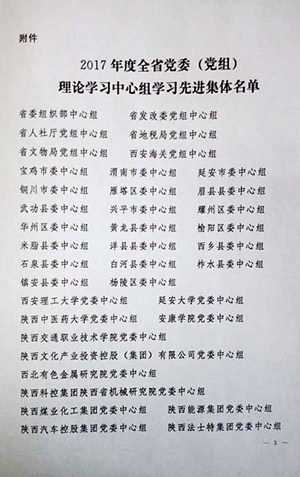 附件
2017年度全省党委（党组）
理论学习中心组学习先进集体名单
省委组织部中心组 省发改委党组中心组
省人社厅党组中心组 省地税局党组中心组
省文物局党组中心组 西安海关党组中心组
宝鸡市委中心组 渭南市委中心组 延安市委中心组
铜川市委中心组 雁塔区委中心组 眉县县委中心组
武功县委中心组 兴平市委中心组 耀州区委中心组
华州区委中心组 黄龙县委中心组 榆阳区委中心组
米脂县委中心组 洋县县委中心组 西乡县委中心组
石泉县委中心组 白河县委中心组 柞水县委中心组
镇安县委中心组 杨陵区委中心组
西安理工大学党委中心组 延安大学党委中心组
陕西中医药大学党委中心组 安康学院党委中心组
陕西交通职业技术学院党委中心组
陕西文化产业投资控股（集团）有限公司党委中心组
西北有色金属研究院党委中心组
陕西科控集团陕西省机械研究院党委中心组
陕西煤业化工集团党委中心组 陕西能源集团党委中心组
陕西汽车控股集团党委中心组 陕西法士特集团党委中心组
— 3 —